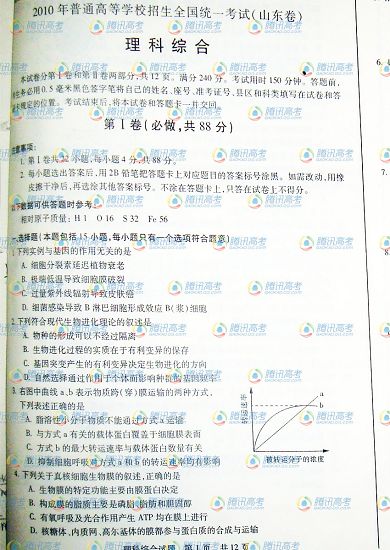 2010 年普通高等学校招生全国统一考试(山东卷)
理 科 综 合
本试卷分第Ⅰ卷和第Ⅱ卷两部分,共 12 页。满分 240 分。考试用时 150 分钟。答题前,
考生务必用 0.5 毫米黑色签字笔将自己的姓名、座号、准考证号、县区和科类填写在试卷和答
题卡规定的位置。考试结束后,将本试卷和答题卡一并交回。
第Ⅰ卷(必做,共 88 分)
注意事项:
1. 第Ⅰ卷共 22 小题,每小题 4 分,共 88 分。
2. 每小题选出答案后,用 2B 铅笔把答题卡上对应题目的答案标号涂黑。如需改动,用橡
皮擦干净后,再选涂其他答案标号。不涂在答题卡上,只答在试卷上不得分。
以下数据可供答题时参考:
相对原子质量: H 1 O 16 S 32 Fe 56
一、选择题(本题包括 15 小题,每小题只有一个选项符合题意)
1. 下列实例与基因的作用无关的是
A. 细胞分裂素延迟植物衰老
B. 极端低温导致细胞膜破裂
C. 过量紫外线辐射导致皮肤癌
D. 细菌感染导致 B 淋巴细胞形成效应 B(浆)细胞
2. 下列符合现代生物进化理论的叙述是
A. 物种的形成可以不经过隔离
B. 生物进化过程的实质在于有利变异的保存
C. 基因突变产生的有利变异决定生物进化的方向
D. 自然选择通过作用于个体而影响种群基因频率
3. 右图中曲线 a、b 表示物质跨(穿)膜运输的两种方式,
下列表述正确的是
A. 脂溶性小分子物质不能通过方式 a 运输
B. 与方式 a 有关的载体蛋白覆盖于细胞膜表面
C. 方式 b 的最大转运速率与载体蛋白数量有关
D. 抑制细胞呼吸对方式 a 和 b 的转运速率均有影响
转运速率
a
b
被转运分子的浓度
4. 下列关于真核细胞生物膜的叙述,正确的是
A. 生物膜的特定功能主要由膜蛋白决定
B. 构成膜的脂质主要是磷脂、脂肪和胆固醇
C. 有氧呼吸及光合作用产生 ATP 均在膜上进行
D. 核糖体、内质网、高尔基体的膜都参与蛋白质的合成与运输
理科综合试题 第 1 页 共 12 页
腾讯高考